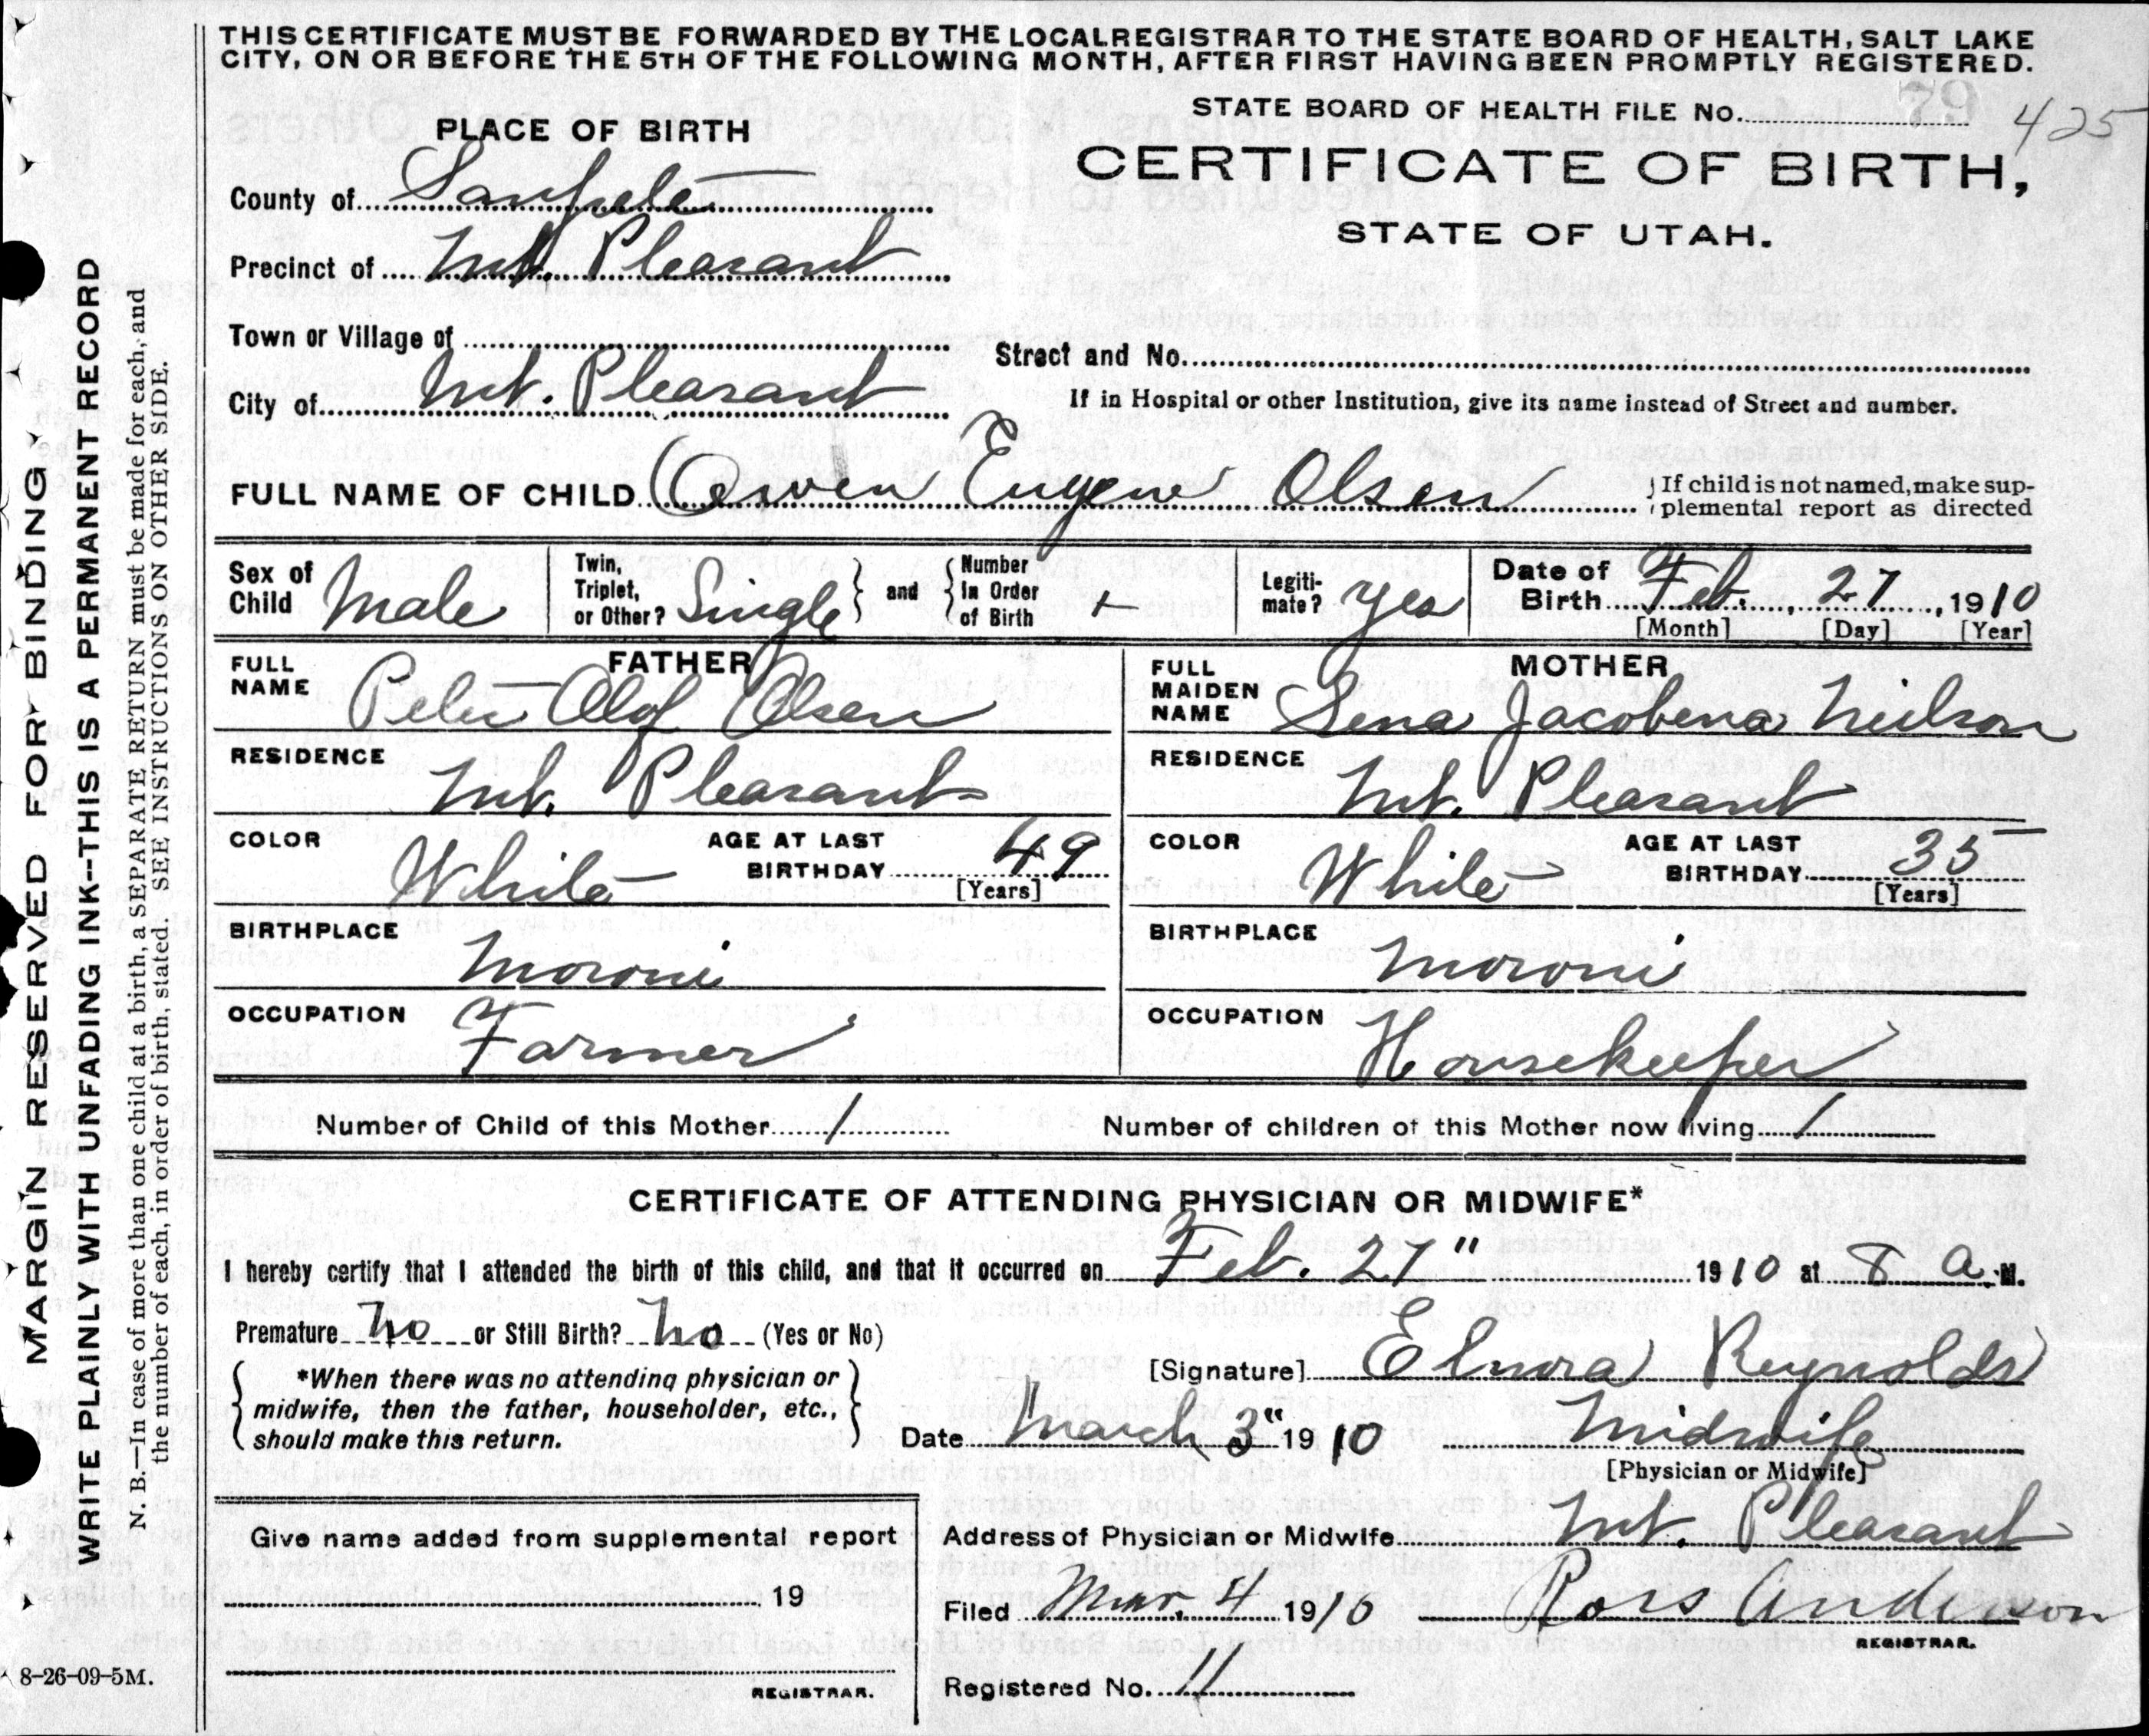 THIS CERTIFICATE MUST BE FORWARDED BY THE LOCAL REGISTRAR TO THE STATE BOARD OF HEALTH, SALT LAKE
CITY, ON OR BEFORE THE 5TH OF THE FOLLOWING MONTH, AFTER FIRST HAVING BEEN PROMPTLY REGISTERED.
STATE BOARD OF HEALTH FILE No. 79 425
PLACE OF BIRTH
CERTIFICATE OF BIRTH,
STATE OF UTAH.
County of Sanpete
Precinct of Mt. Pleasant
Town or Village of
Street and No.
City of Mt. Pleasant
If in Hospital or other Institution, give its name instead of Street and number.
FULL NAME OF CHILD Eugene Olsen
If child is not named, make sup-
plemental report as directed
Sex of Child Male
Twin, Triplet, or Other? Single and Number In Order of Birth
Legiti-mate? yes
Date of Birth Feb. 27, 1910
[Month] [Day] [Year]
FATHER
FULL NAME Peter Olof Olsen
RESIDENCE Mt. Pleasant
COLOR White AGE AT LAST BIRTHDAY 49
[Years]
BIRTHPLACE Moroni
OCCUPATION Farmer
MOTHER
FULL MAIDEN NAME Sena Jacobena Neilson
RESIDENCE Mt. Pleasant
COLOR White AGE AT LAST BIRTHDAY 35
[Years]
BIRTHPLACE Moroni
OCCUPATION Housekeeper
Number of Child of this Mother 1 Number of children of this Mother now living 1
CERTIFICATE OF ATTENDING PHYSICIAN OR MIDWIFE*
I hereby certify that I attended the birth of this child, and that it occurred on Feb. 27" 1910 at 8 a. M.
Premature no or Still Birth? no (Yes or No)
*When there was no attending physician or
midwife, then the father, householder, etc.,
should make this return.
[Signature] Elnora Reynolds
Date March 3" 1910 Midwife
[Physician or Midwife]
Give name added from supplemental report
19
REGISTRAR.
Address of Physician or Midwife Mt. Pleasant
Filed Mar. 4 1910 Ross Anderson
REGISTRAR.
Registered No. 11
MARGIN RESERVED FOR BINDING
WRITE PLAINLY WITH UNFADING INK--THIS IS A PERMANENT RECORD
N. B.—In case of more than one child at a birth, a SEPARATE RETURN must be made for each, and
the number of each, in order of birth, stated. SEE INSTRUCTIONS ON OTHER SIDE.
8-26-09-5M.